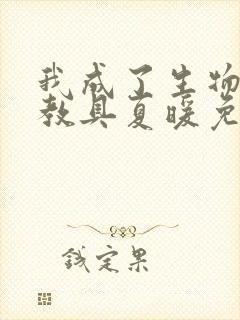 我成了生物
教具夏暖免
钱定果